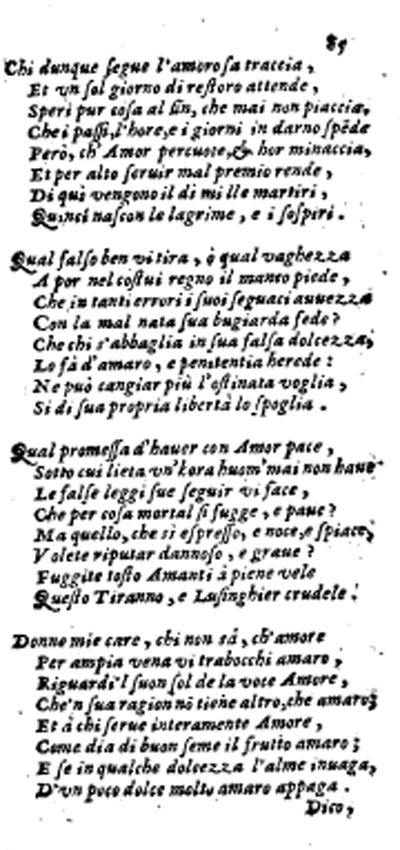 85
Chi dunque ſegue l'amoroſa traccia,
Et vn ſol giorno di reſtoro attende,
Speri pur coſa al fin, che mai non piaccia,
Che i paſſi, l'hore, e i giorni in darno ſpẽde
Però, ch'Amor percuote, & hor minaccia,
Et per alto ſeruir mal premio rende,
Di quì vengono il di mille martiri,
Quinci naſcon le lagrime, e i ſoſpiri.
Qual falſo ben vi tira, ò qual vaghezza
A por nel coſtui regno il manco piede,
Che in tanti errori i ſuoi ſeguaci auuezza
Con la mal nata ſua bugiarda fede?
Che chi s'abbaglia in ſua falſa dolcezza,
Lo fà d'amaro, e penitentia herede:
Ne può cangiar più l'oſtinata voglia,
Si di ſua propria libertà lo ſpoglia.
Qual promeſſa d'hauer con Amor pace,
Sotto cui lieta vn'hora huom'mai non haue
Le falſe leggi ſue ſeguir vi face,
Che per coſa mortal ſi fugge, e paue?
Ma quello, che sì eſpreſſo, e noce, e ſpiace,
Volete riputar dannoſo, e graue?
Fuggite toſto Amanti à piene vele
Queſto Tiranno, e Luſinghier crudele.
Donne mie care, chi non sá, ch'amore
Per ampia vena vi trabocchi amaro,
Riguardi'l ſuon ſol de la voce Amore,
Che'n ſua ragion nõ tiene altro, che amaro;
Et à chi ſerue interamente Amore,
Come dia di buon ſeme il frutto amaro;
E ſe in qualche dolcezza l'alme inuaga,
D'vn poco dolce molto amaro appaga.
Dico,